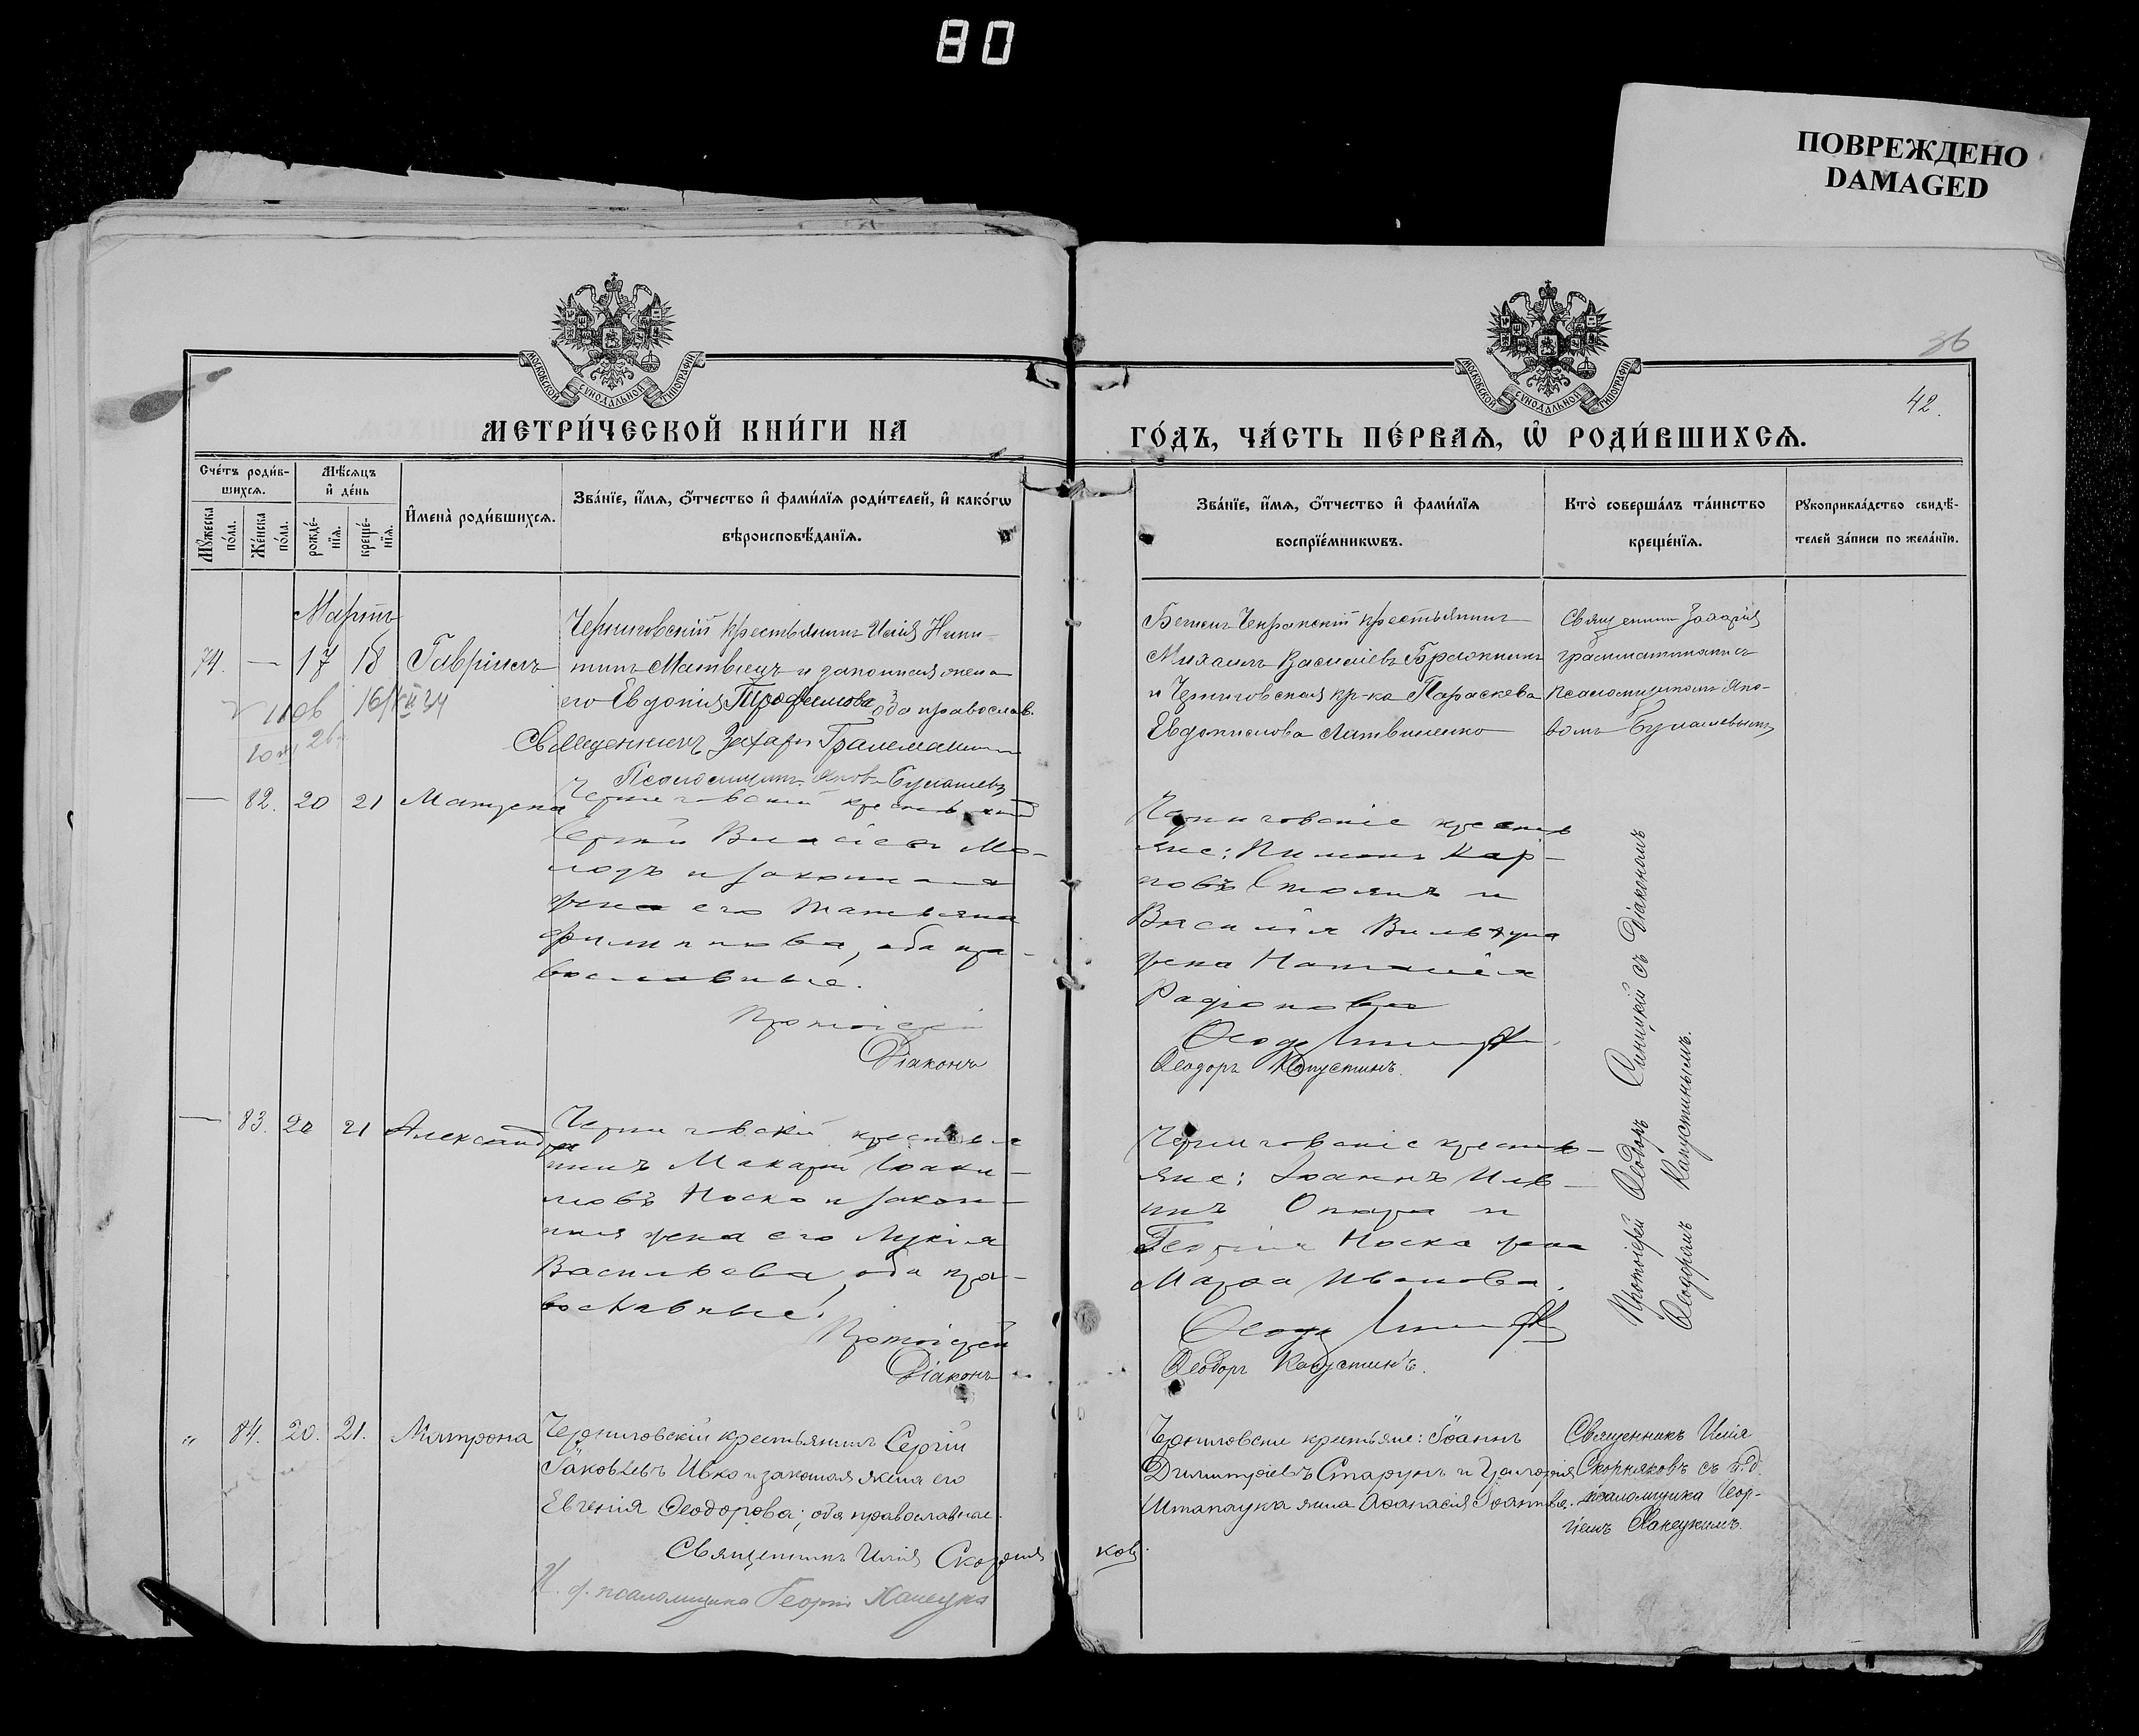 80
ПОВРЕЖДЕНО
DAMAGED
36
42.
МОСКОВСКОЙ СѴНОДАЛЬНОЙ ТИПОГРАФІИ
МОСКОВСКОЙ СѴНОДАЛЬНОЙ ТИПОГРАФІИ
МЕТРИ́ЧЕСКОЙ КНИ́ГИ НА
ГО́ДЪ, ЧА́СТЬ ПЕ́РВАѦ, Ѡ҆ РОДИ́ВШИХСѦ.
Сче́тъ роди́в-
шихсѧ.
Мѣ́сѧцъ
и҆ де́нь
Мꙋ́жеска по́ла.
Же́нска по́ла.
рожде́-нїѧ.
креще́-нїѧ.
И҆мена̀ роди́вшихсѧ.
Зва́нїе, и҆́мѧ, ѻ҆́тчество и҆ фами́лїѧ роди́телей, и҆ како́гѡ
вѣроисповѣ́данїѧ.
Зва́нїе, и҆́мѧ, ѻ҆́тчество и҆ фами́лїѧ
воспрїе́мникѡвъ.
Кто̀ соверша́лъ та́инство
креще́нїѧ.
Рꙋкоприкла́дство свидѣ́-
телей за́писи по жела́нїю.
Мартъ
74. — 17 18 Гавріилъ
Черниговскій крестьянинъ Илія Ники-
тинъ Матвіецъ и законная жена
его Евдокія Трофимова, оба православ.
Священникъ Захарій Грамматин
Псаломщикъ Яковъ Булашевъ
Михаилъ Василіевъ
и Черниговская кр-ка Параскева
Евдокимова Литвиненко
Священник Захарія
Грамматикати съ
псаломщикомъ Яко-
вомъ Булашевымъ
— 82. 20 21 Матрена
Черниговскій крестьянинъ
Сергій Власіевъ Мо-
лодъ и законная
жена его Татьяна
Филиппова, оба пра-
вославные.
Протоіерей
Діаконъ
Черниговскіе кресть
яне: Пименъ Кар-
повъ и
Василія
жена Наталія
Радіонова
Ѳеодоръ Капустинъ.
Протоіерей Ѳеодоръ Синицкій съ Діакономъ
Ѳеодоромъ Капустинымъ.
— 83. 20 21 Александра
Черниговскій крестья
нинъ Макарій Іоаки-
мовъ Носко и закон-
ная жена его Лукія
Васильева, оба пра-
вославные.
Протоіерей
Діаконъ
Черниговскіе кресть-
яне: Іоаннъ Иль-
инъ Опара и
Георгія Носка жена
Марѳа Иванова.
Ѳеодоръ Капустинъ.
" 84. 20. 21. Матрона
Черниговскій крестьянинъ Сергій
Іаковлевъ Ивко и законная жена его
Евгенія Ѳеодорова; оба православные.
Священникъ Илія Скорняковъ
И. д. псаломщика Георгій Ханецкій
Черниговскіе крестьяне: Іоаннъ
Димитріевъ Старунъ и Григорія
жена Аѳанасія Іоаннова.
Священникъ Илія
Скорняковъ съ и. д.
псаломщика Геор-
гіемъ Ханецкимъ.